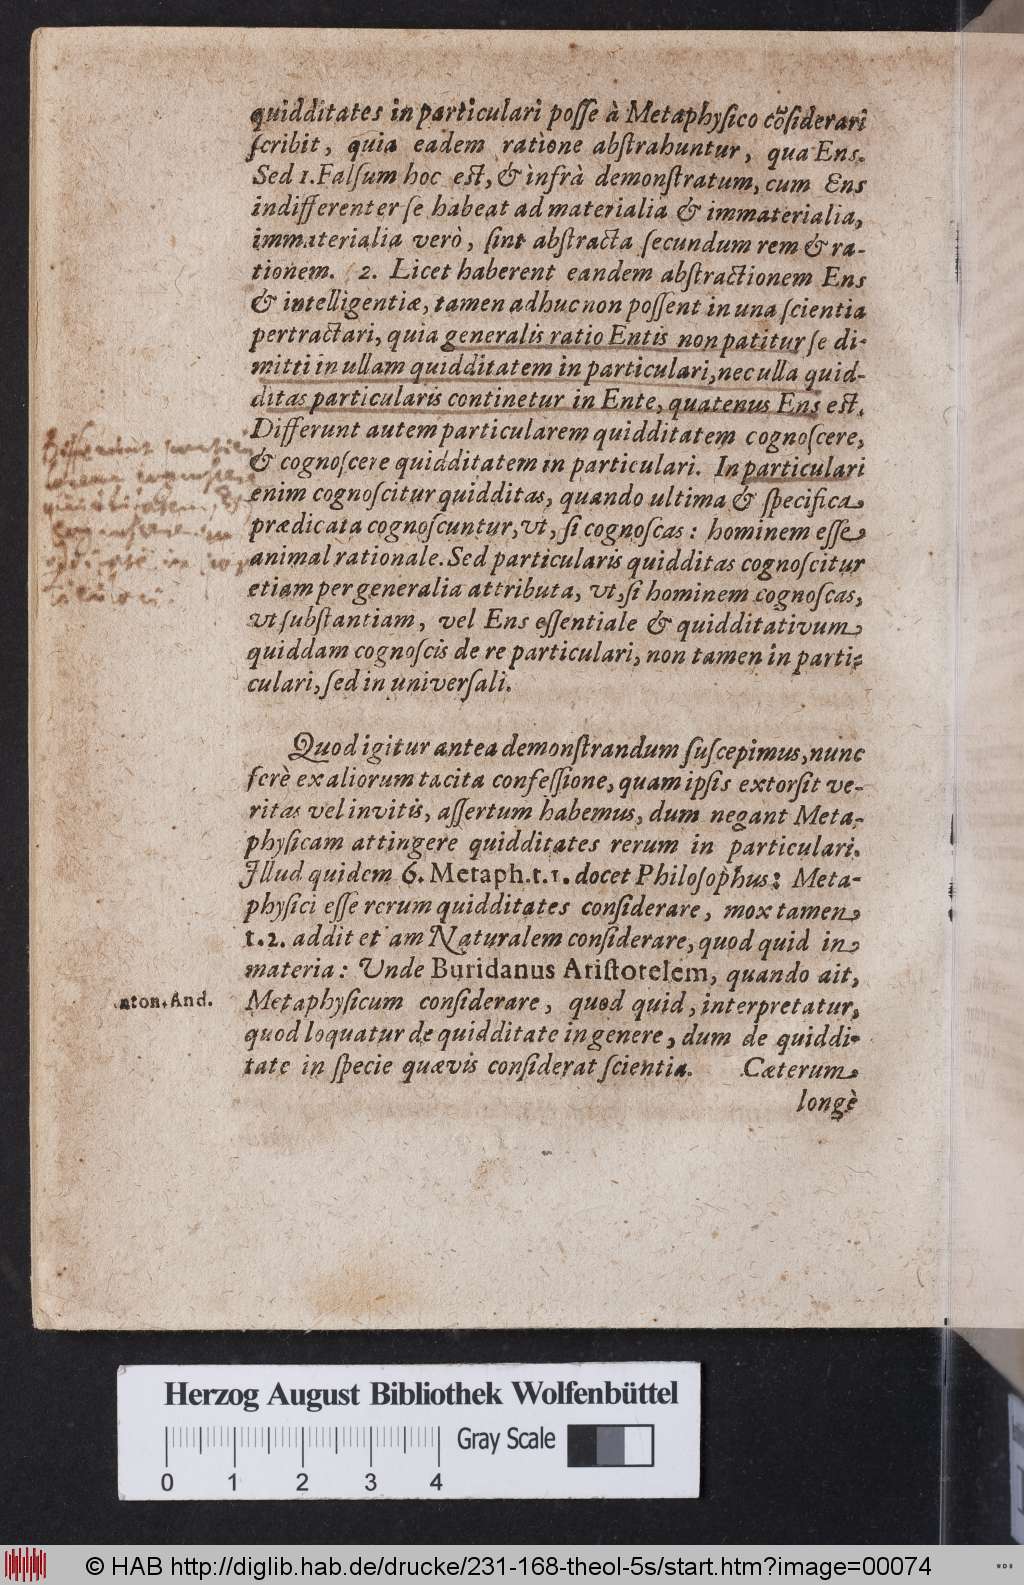 quidditates in particulari poſſe à Metaphyſico cõſiderari
ſcribit, quia eadem ratione abſtrahuntur, qua Ens.
Sed 1. Falſum hoc eſt, & infrà demonſtratum, cum Ens
indifferenter ſe habeat ad materialia & immaterialia,
immaterialia verò, ſint abſtracta ſecundum rem & ra-
tionem. 2. Licet haberent eandem abſtractionem Ens
& intelligentiæ, tamen adhuc non poſſent in una ſcientia
pertractari, quia generalis ratio Entis non patitur ſe di-
mitti in ullam quidditatem in particulari, nec ulla quid-
ditas particularis continetur in Ente, quatenus Ens eſt.
Differunt autem particularem quidditatem cognoſcere,
& cognoſcere quidditatem in particulari. In particulari
enim cognoſcitur quidditas, quando ultima & ſpecifica
prædicata cognoſcuntur, vt, ſi cognoſcas: hominem eſſe
animal rationale. Sed particularis quidditas cognoſcitur
etiam per generalia attributa, vt, ſi hominem cognoſcas,
vt ſubſtantiam, vel Ens eſſentiale & quidditativum
quiddam cognoſcis de re particulari, non tamen in parti-
culari, ſed in univerſali.
Differunt
cognoscere in
Quod igitur antea demonſtrandum ſuſcepimus, nunc
ferè ex aliorum tacita confeſſione, quam ipſis extorſit ve-
ritas vel invitis, aſſertum habemus, dum negant Meta-
phyſicam attingere quidditates rerum in particulari.
Illud quidem 6. Metaph. t. 1. docet Philoſophus: Meta-
phyſici eſſe rerum quidditates conſiderare, mox tamen
t. 2. addit etiam Naturalem conſiderare, quod quid in
materia: Unde Buridanus Ariſtotelem, quando ait,
Metaphyſicum conſiderare, quod quid, interpretatur,
quod loquatur de quidditate in genere, dum de quiddi-
tate in ſpecie quævis conſiderat ſcientia. Cæterum
longè
nton. And.
Herzog August Bibliothek Wolfenbüttel
Gray Scale
0 1 2 3 4
© HAB http://diglib.hab.de/drucke/231-168-theol-5s/start.htm?image=00074